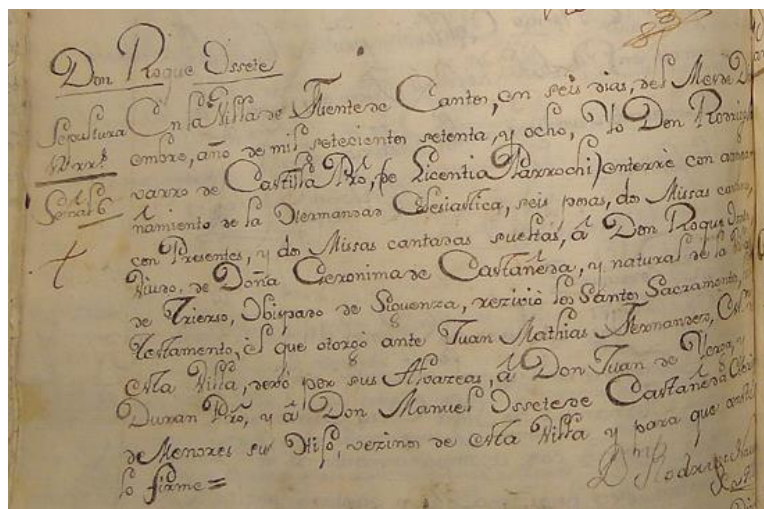 Don Roque Ossete
Sepultura En la Villa de Fuente de Cantos, en seis dias, del Mes de D
embre, año de mil setecientos setenta, y ocho, Yo Don Rodrigo
varro de Castilla Pro, (de Licentia Parrochi) enterrè con
ñamiento de la Hermandad Eclesiastica, seis posas, dos Missas
con Presentes, y dos Missas cantadas sueltas, â Don Roque
Viudo, de Doña Geronima de Castañeda, y natural de la
de Trierso, Obispado de Siguenza, rezivio los Santos Sacramentos,
Testamento, el que otorgó ante Juan Mathias Fernandez,
esta Villa, dexó por sus Alvazeas, â Don Juan de
Duran Pro, y â Don Manuel Ossete de Castañeda
de Menores su Hijo, vezinos de esta Villa y para que
lo firme=
Dn Rodrigo